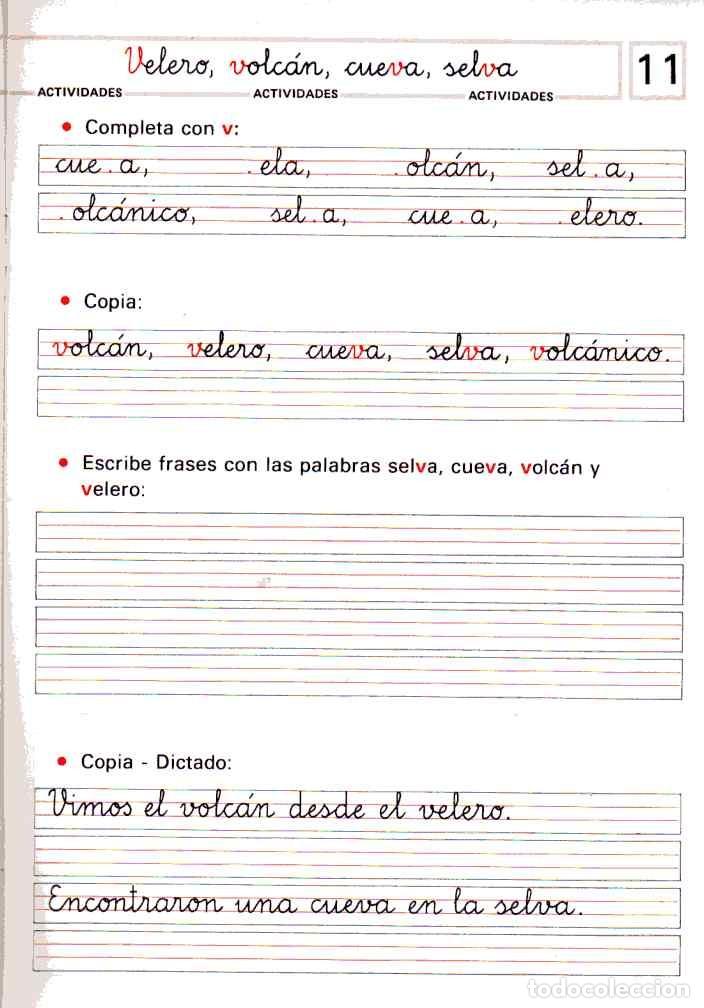 Velero, volcán, cueva, selva
11
ACTIVIDADES ACTIVIDADES ACTIVIDADES
• Completa con v:
cue . a, . ela, . olcán, sel . a,
. olcánico, sel . a, cue . a, . elero.
• Copia:
volcán, velero, cueva, selva, volcánico.
• Escribe frases con las palabras selva, cueva, volcán y
velero:
• Copia - Dictado:
Vimos el volcán desde el velero.
Encontraron una cueva en la selva.
todocoleccion